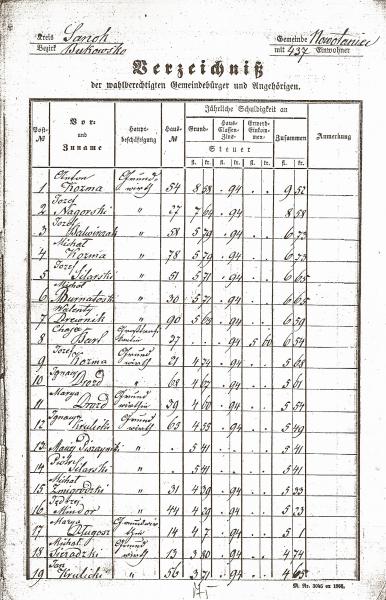 Kreis Sanok
Bezirk Bukowsko
Gemeinde Nowotaniec
mit 437 Einwohner
Verzeichniß
der wahlberechtigten Gemeindebürger und Angehörigen.
Post-№ Vor- und Zuname Haupt-beschäftigung Haus-№ Jährliche Schuldigkeit an Anmerkung
Grund- Haus-Classen-Zins- Erwerb-Einkom-men- Zusammen
Steuer
fl. kr. fl. kr. fl. kr. fl. kr.
Anton Grund-
1 Kozma wirth 54 8 58 . 94 . . 9 52
Jozef
2 Nagorski " 27 7 64 . 94 . . 8 58
Jozef
3 58 5 79 . 94 . . 6 73
Michał
4 Kozma " 78 5 79 . 94 . . 6 73
Jozef
5 Silarski " 51 5 71 . 94 . . 6 65
Michał
6 Burnatoski " 30 5 71 . 94 . . 6 65
Walenty
7 Drewnik " 90 5 65 . 94 . . 6 59
Chaja
8 Barl 27 . 94 5 60
Jozef Grund
9 Kozma wirth 21 4 74 . 94 . . 5 68
Ignacy
10 Drozd " 68 4 67 . 94 . . 5 61
Marya Grund
11 Drozd wirthin 39 4 60 . 94 . . 5 54
Ignacy Grund
12 Krulicki wirth 65 4 55 . 94 . . 5 49
13 " . 5 41 . . . . 5 41
Piotr
14 Silarski " . 5 41 . . . . 5 41
Michał
15 Zmigrodzki " 31 4 39 . 94 . . 5 33
Jędrzej
16 Mindor " 44 4 29 . 94 . . 5 23
Marya Grundwir
17 Długosz thin 14 4 7 . 94 . . 5 1
Michał Grund
18 Sieradzki wirth 13 3 80 . 94 . . 4 74
Jan
19 Krulicki " 56 3 71 . 94 . . 4 65
M. Nr. 3045 ex 1866.